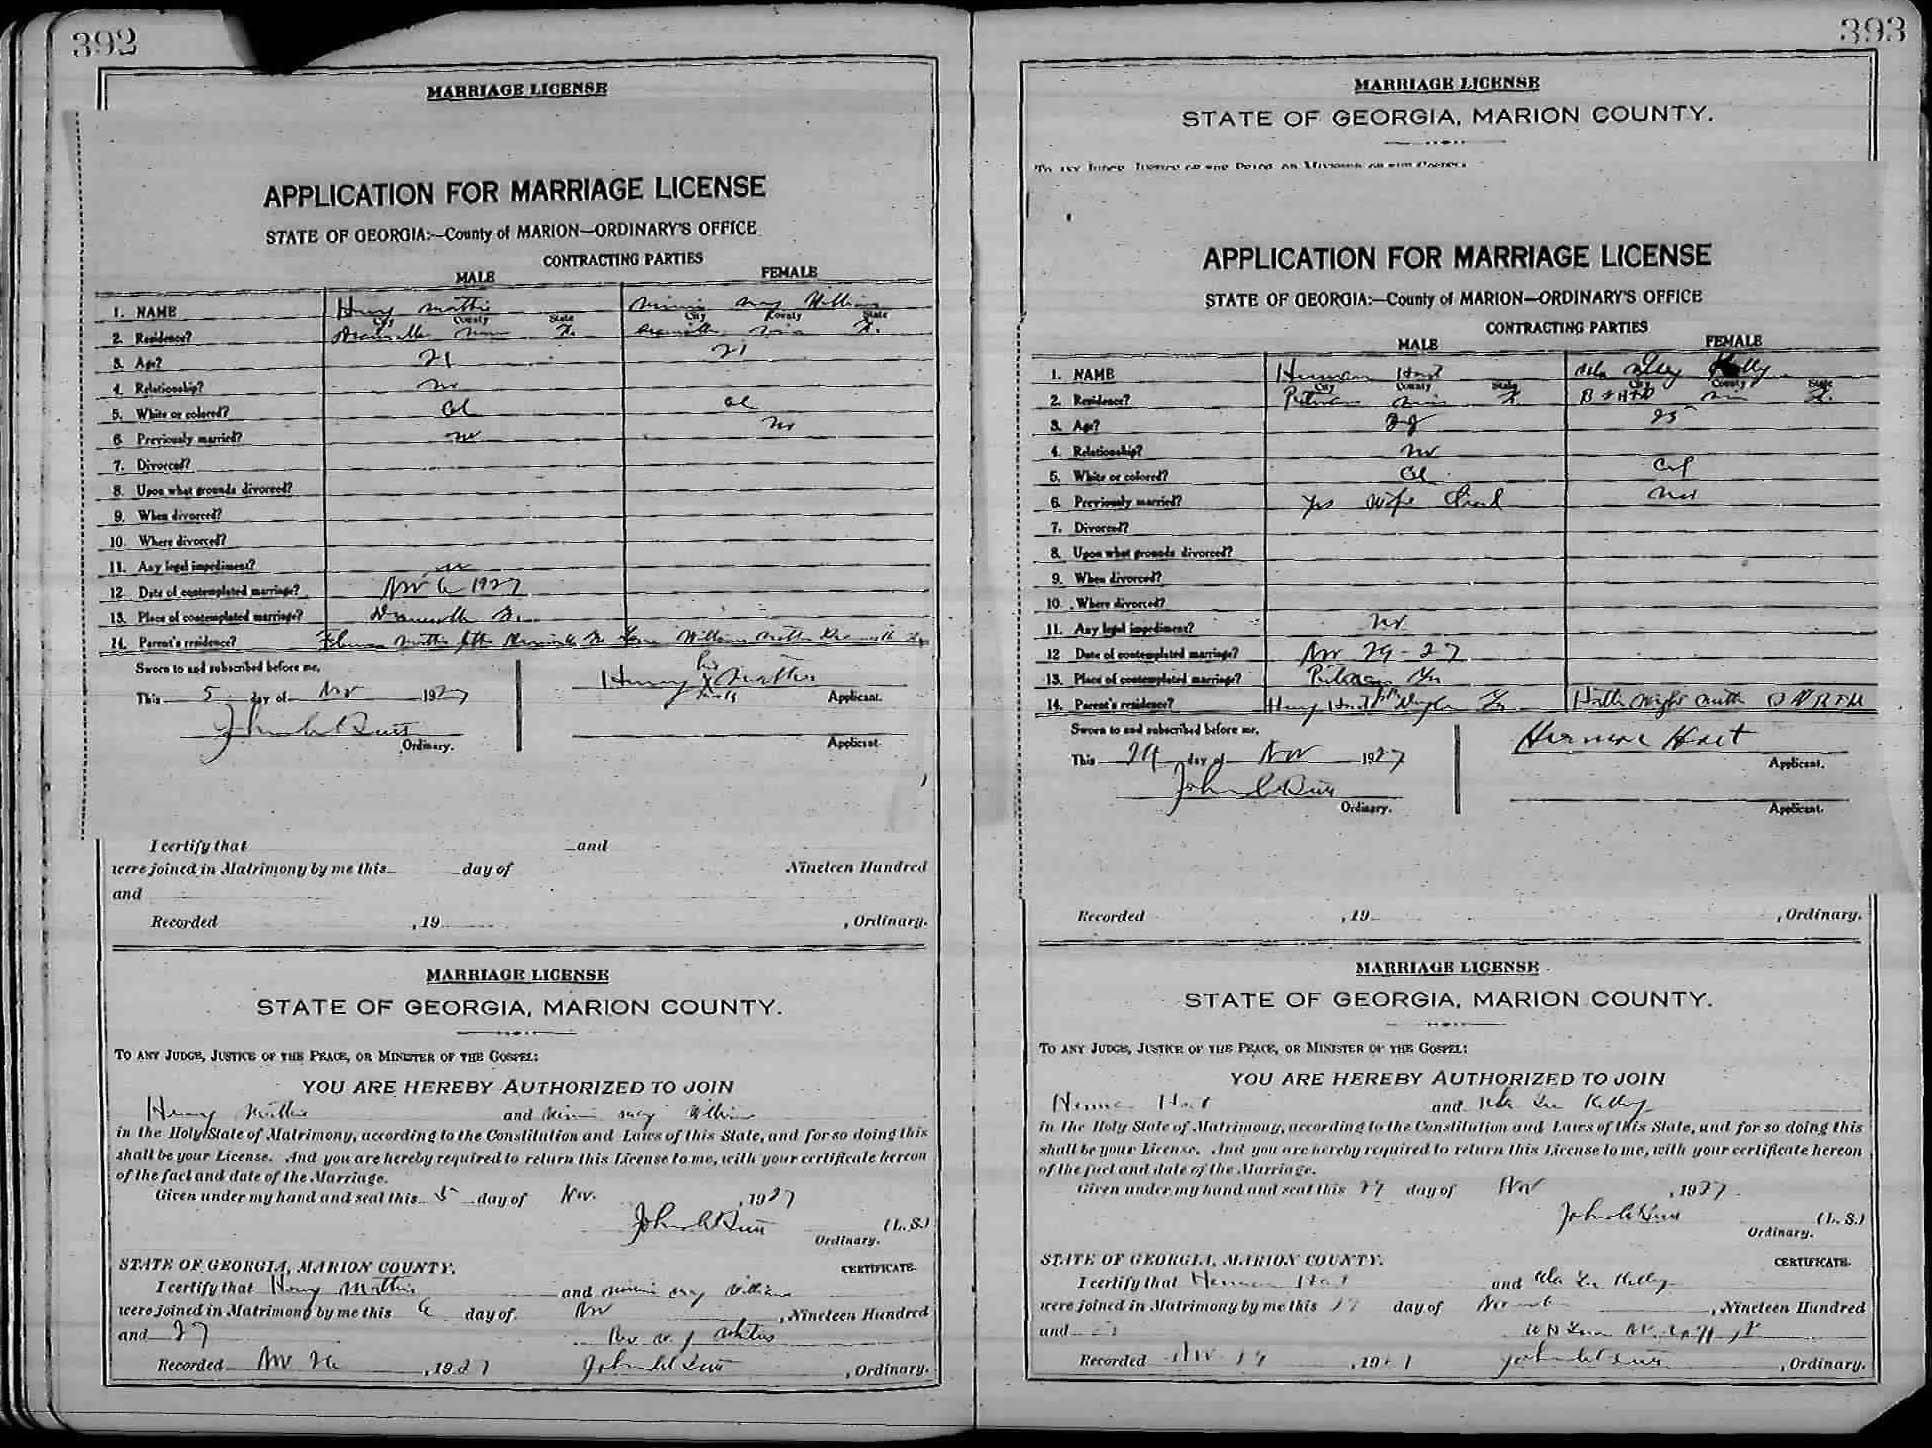 392
MARRIAGE LICENSE
APPLICATION FOR MARRIAGE LICENSE
STATE OF GEORGIA:—County of MARION—ORDINARY'S OFFICE
CONTRACTING PARTIES
MALE FEMALE
1. NAME Henry Mathis Minnie May Williams
City County State City County State
2. Residence?
3. Age? 21 21
4. Relationship? no
5. White or colored? Col Col
6. Previously married? no no
7. Divorced?
8. Upon what grounds divorced?
9. When divorced?
10. Where divorced?
11. Any legal impediment? no
12. Date of contemplated marriage? Nov 6 1927
13. Place of contemplated marriage?
14. Parent's residence? Mathis Williams mother
Sworn to and subscribed before me,
This 5 day of Nov 1927
Henry X Mathis
Applicant.
John C Butt
Ordinary.
Applicant.
I certify that and
were joined in Matrimony by me this day of Nineteen Hundred
and
Recorded , 19 , Ordinary.
MARRIAGE LICENSE
STATE OF GEORGIA, MARION COUNTY.
TO ANY JUDGE, JUSTICE OF THE PEACE, OR MINISTER OF THE GOSPEL:
YOU ARE HEREBY AUTHORIZED TO JOIN
Henry Mathis and Minnie May Williams
in the Holy State of Matrimony, according to the Constitution and Laws of this State, and for so doing this
shall be your License. And you are hereby required to return this License to me, with your certificate hereon
of the fact and date of the Marriage.
Given under my hand and seal this 5 day of Nov. , 1927
John C Butt (L. S.)
Ordinary.
STATE OF GEORGIA, MARION COUNTY. CERTIFICATE.
I certify that Henry Mathis and Minnie May Williams
were joined in Matrimony by me this 6 day of Nov , Nineteen Hundred
and 27 Rev W. J.
Recorded Nov 26 , 1927 John C Butt , Ordinary.
393
MARRIAGE LICENSE
STATE OF GEORGIA, MARION COUNTY.
TO ANY JUDGE, JUSTICE OF THE PEACE, OR MINISTER OF THE GOSPEL:
APPLICATION FOR MARRIAGE LICENSE
STATE OF GEORGIA:—County of MARION—ORDINARY'S OFFICE
CONTRACTING PARTIES
MALE FEMALE
1. NAME Herman Hart Kelly
City County State City County State
2. Residence? Putnam
3. Age? 25
4. Relationship? no
5. White or colored? Col Col
6. Previously married? yes wife Dead no
7. Divorced?
8. Upon what grounds divorced?
9. When divorced?
10. Where divorced?
11. Any legal impediment? no
12 Date of contemplated marriage? Nov 29-27
13. Place of contemplated marriage? Putnam Ga
14. Parent's residence? Henry Hart
Sworn to and subscribed before me,
This 29 day of Nov 1927
Herman Hart
Applicant.
John C Butt
Ordinary.
Applicant.
Recorded , 19 , Ordinary.
MARRIAGE LICENSE
STATE OF GEORGIA, MARION COUNTY.
TO ANY JUDGE, JUSTICE OF THE PEACE, OR MINISTER OF THE GOSPEL:
YOU ARE HEREBY AUTHORIZED TO JOIN
Herman Hart and Lee Kelly
in the Holy State of Matrimony, according to the Constitution and Laws of this State, and for so doing this
shall be your License. And you are hereby required to return this License to me, with your certificate hereon
of the fact and date of the Marriage.
Given under my hand and seal this 29 day of Nov , 1927
John C Butt (L. S.)
Ordinary.
STATE OF GEORGIA, MARION COUNTY. CERTIFICATE.
I certify that Herman Hart and Lee Kelly
were joined in Matrimony by me this day of , Nineteen Hundred
and
Recorded Nov , 19 John C Butt , Ordinary.